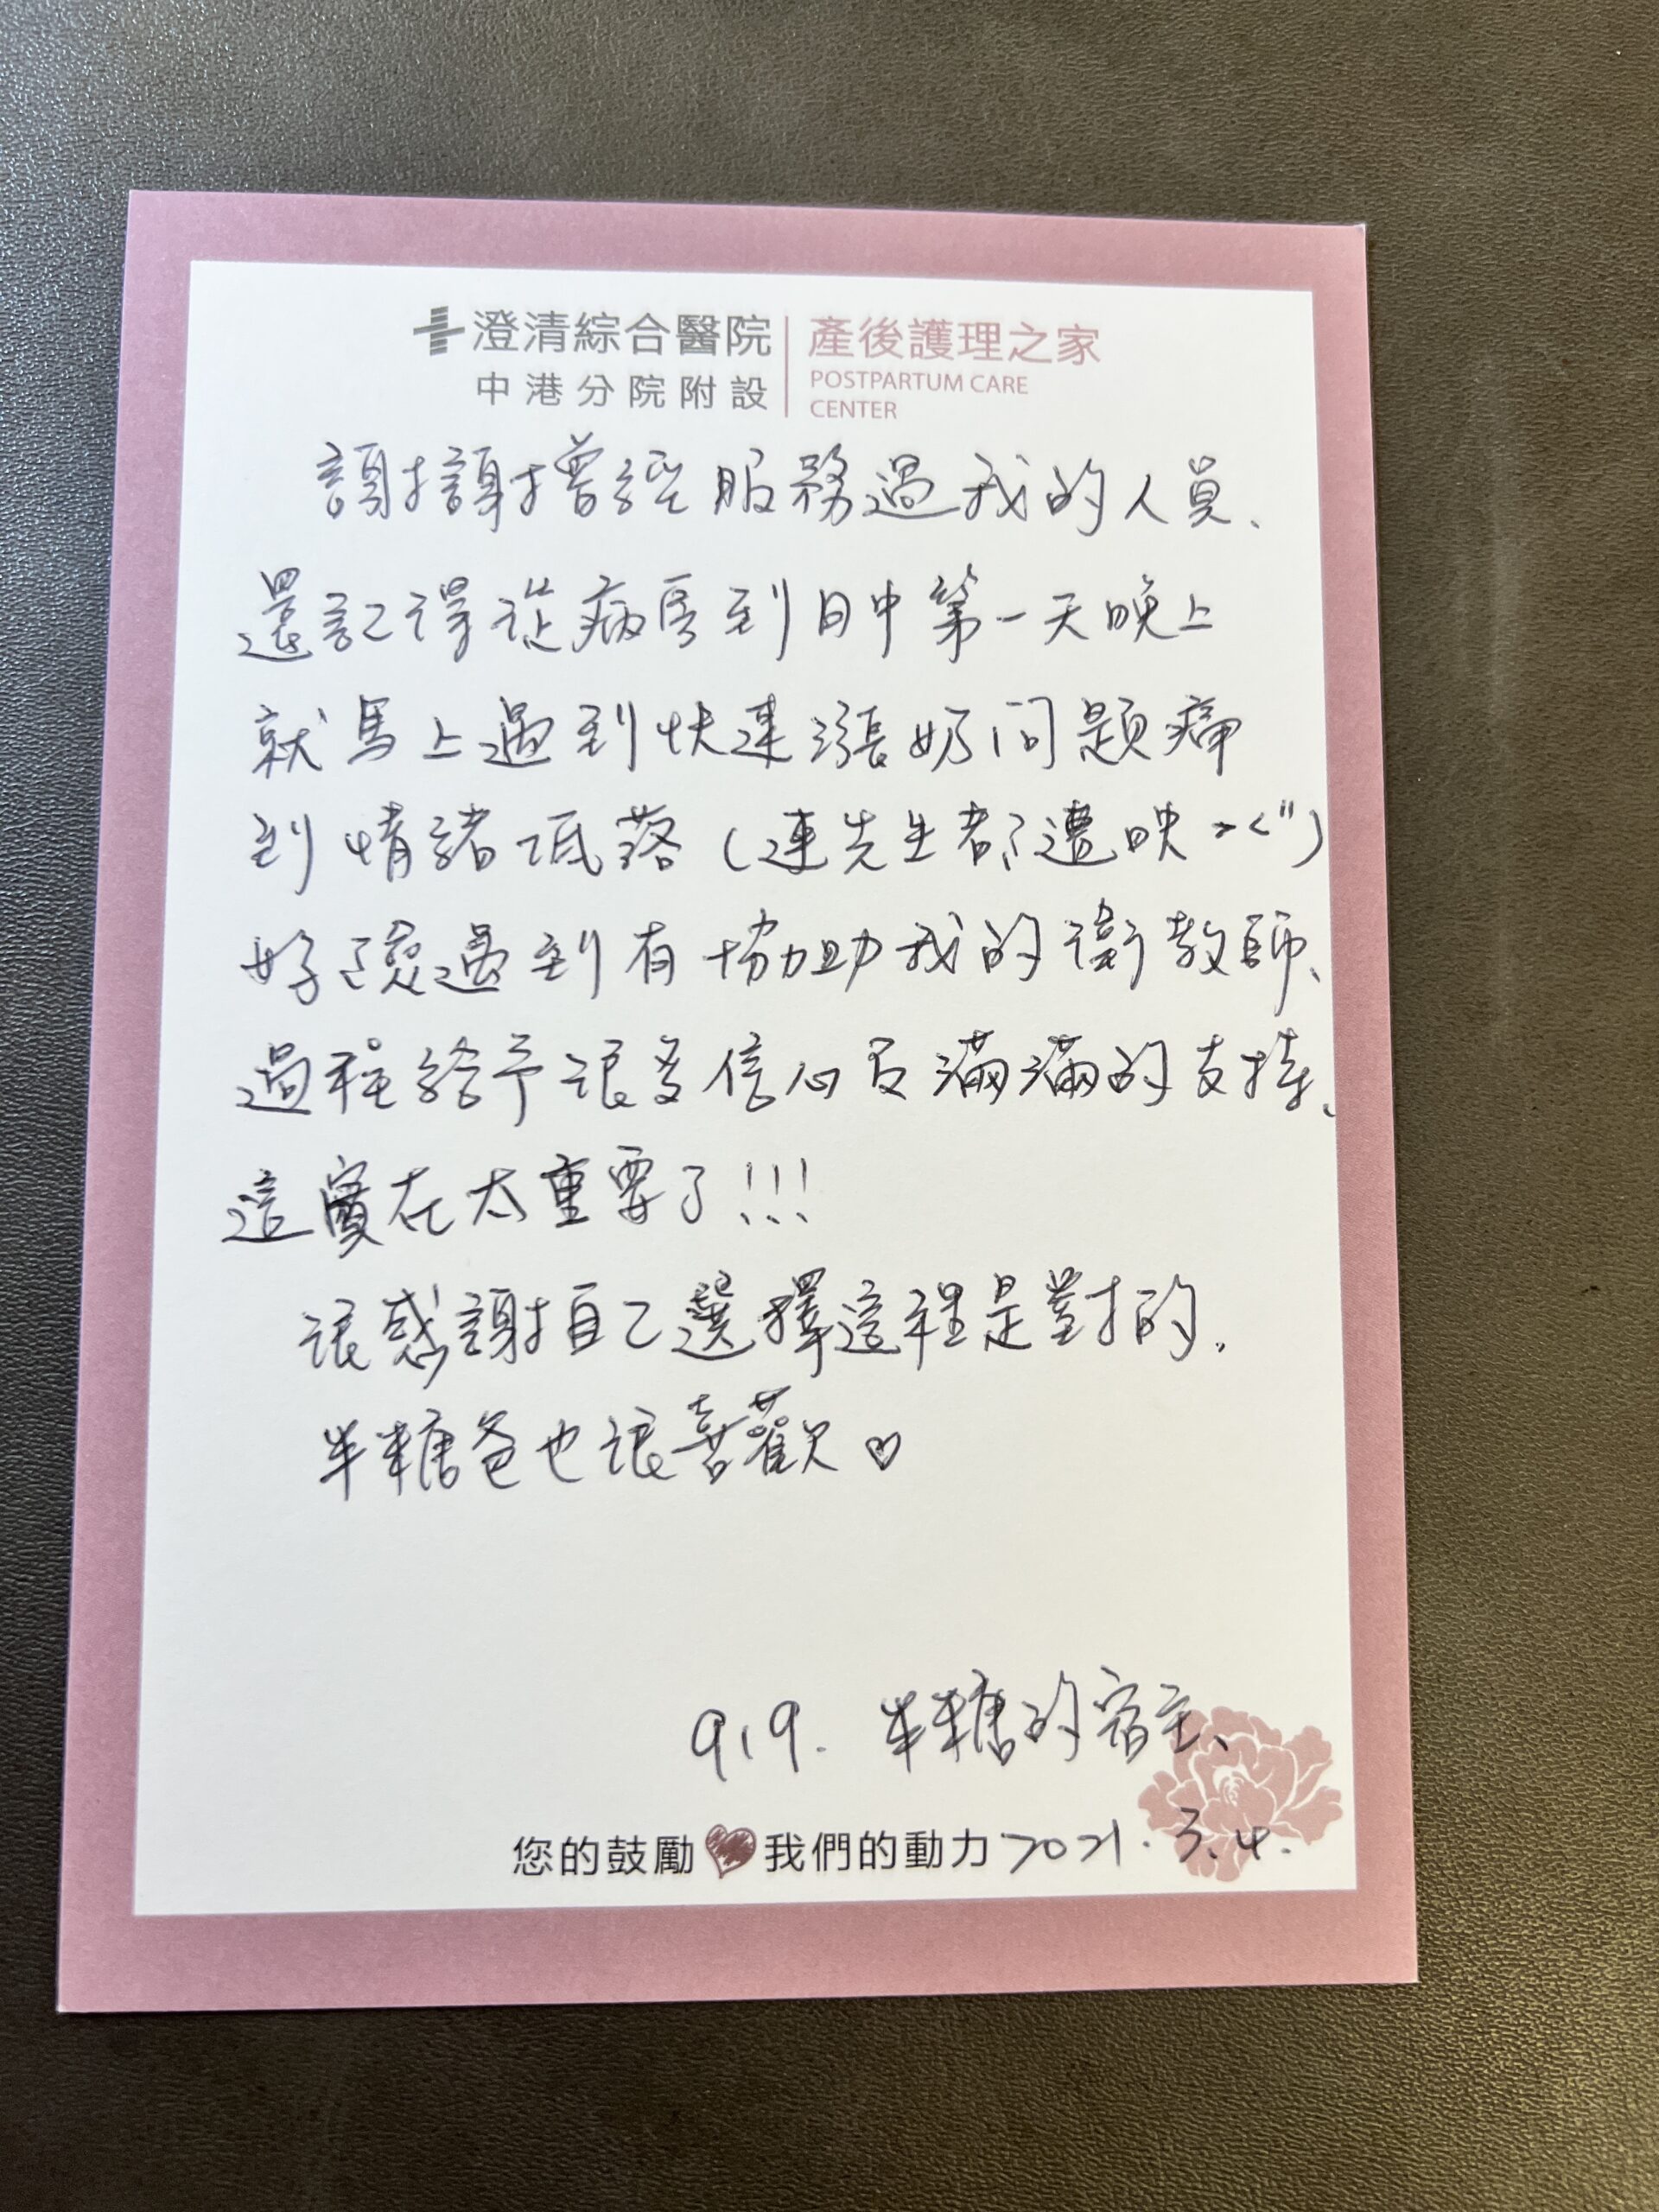 澄清綜合醫院 產後護理之家
中港分院附設 POSTPARTUM CARE
CENTER
謝謝曾經服務過我的人員、
還記得從病房到月中第一天晚上
就馬上遇到快速漲奶問題痛
到情緒低落(連先生都遭映><")
好險遇到有協助我的衛教師、
過程給予很多信心及滿滿的支持、
這實在太重要了!!!
很感謝自己選擇這裡是對的.
半糖爸也很喜歡♡
919. 半糖的宿主、
您的鼓勵 我們的動力 2021.3.4.